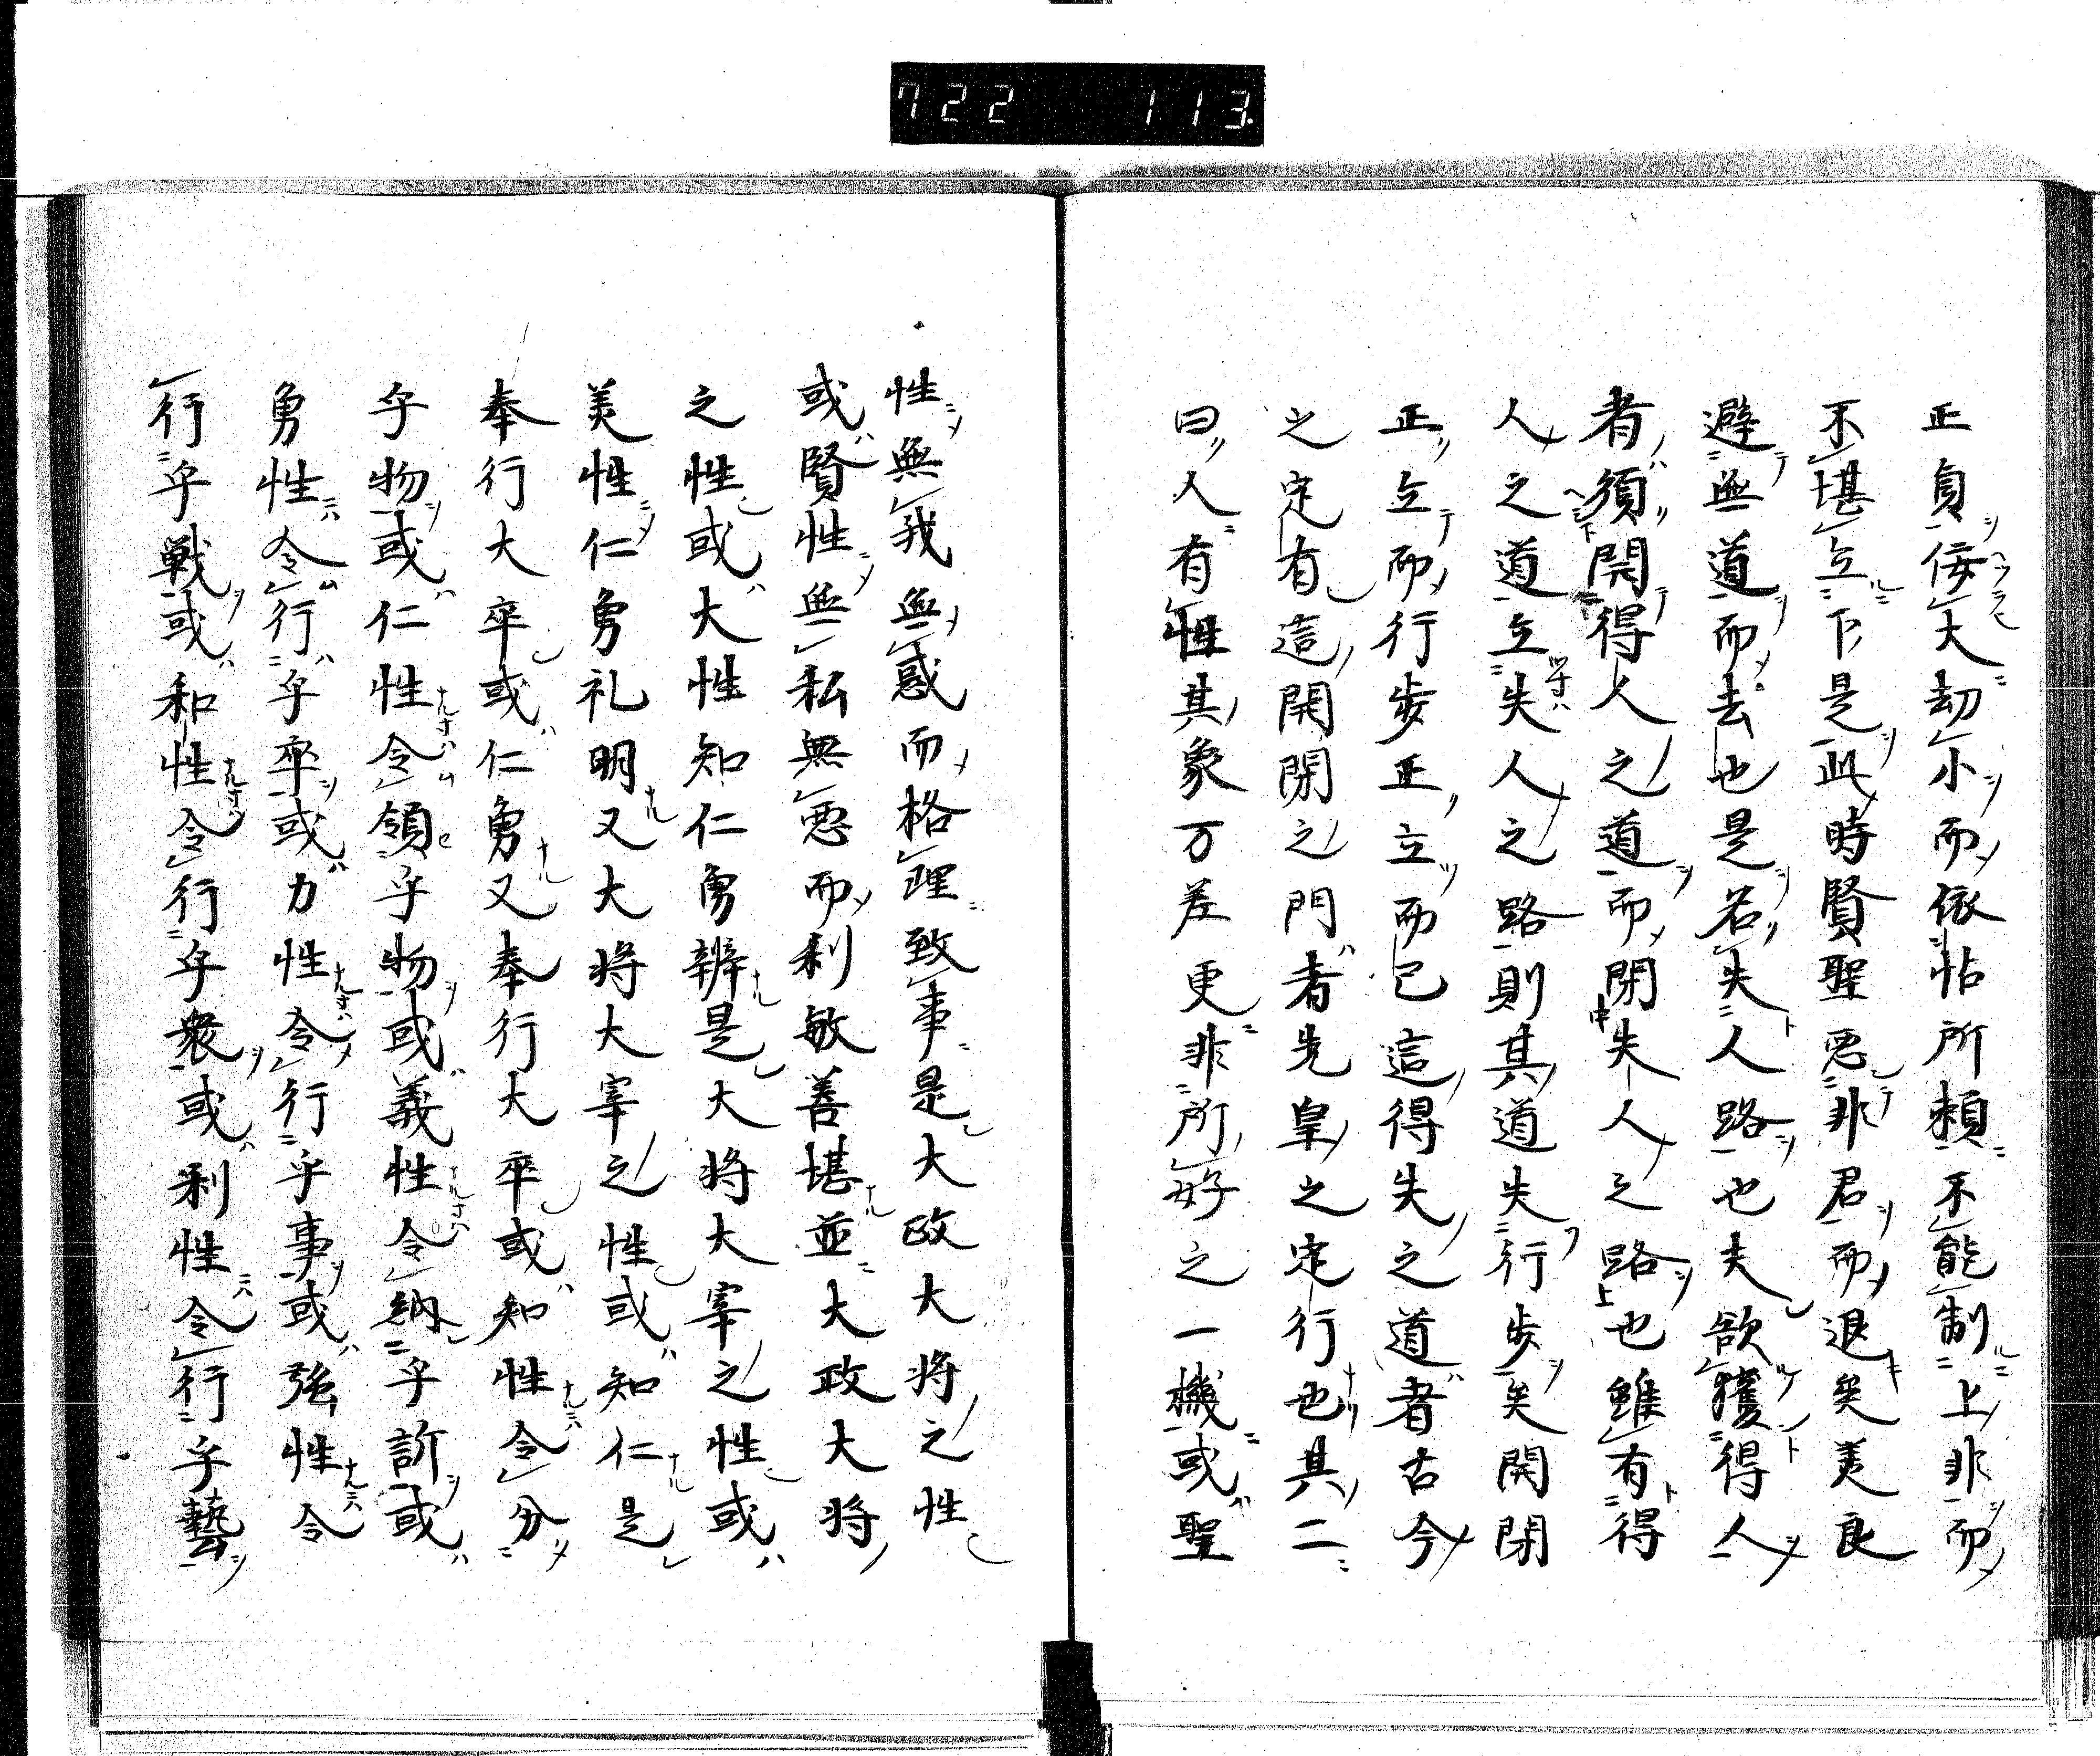 722 113.
正貞佞大劫小而依怙所頼不能制上非而
不堪立下是此時賢聖悪非君而退矣美良
避無道而去也是名失人路也夫欲獲得人
者須開得人之道而閉失人之路也雖有得
人之道立失人之路則其道失行歩矣開閉
正立而行歩正立而已這得失之道者古今
之定有這開閉之門者先皇之定行也其二
曰人有性其象万差更非所好之一機或聖
性無我無惑而格理致事是大政大将之性
或賢性無私無悪而利敏善堪並大政大将
之性或大性知仁勇辨是大将大宰之性或
美性仁勇礼明又大将大宰之性或知仁是
奉行大卒或仁勇又奉行大卒或知性令分
乎物或仁性令領乎物或義性令納乎訴或
勇性令行乎卒或力性令行乎事或強性令
行乎戦或和性令行乎衆或利性令行乎藝